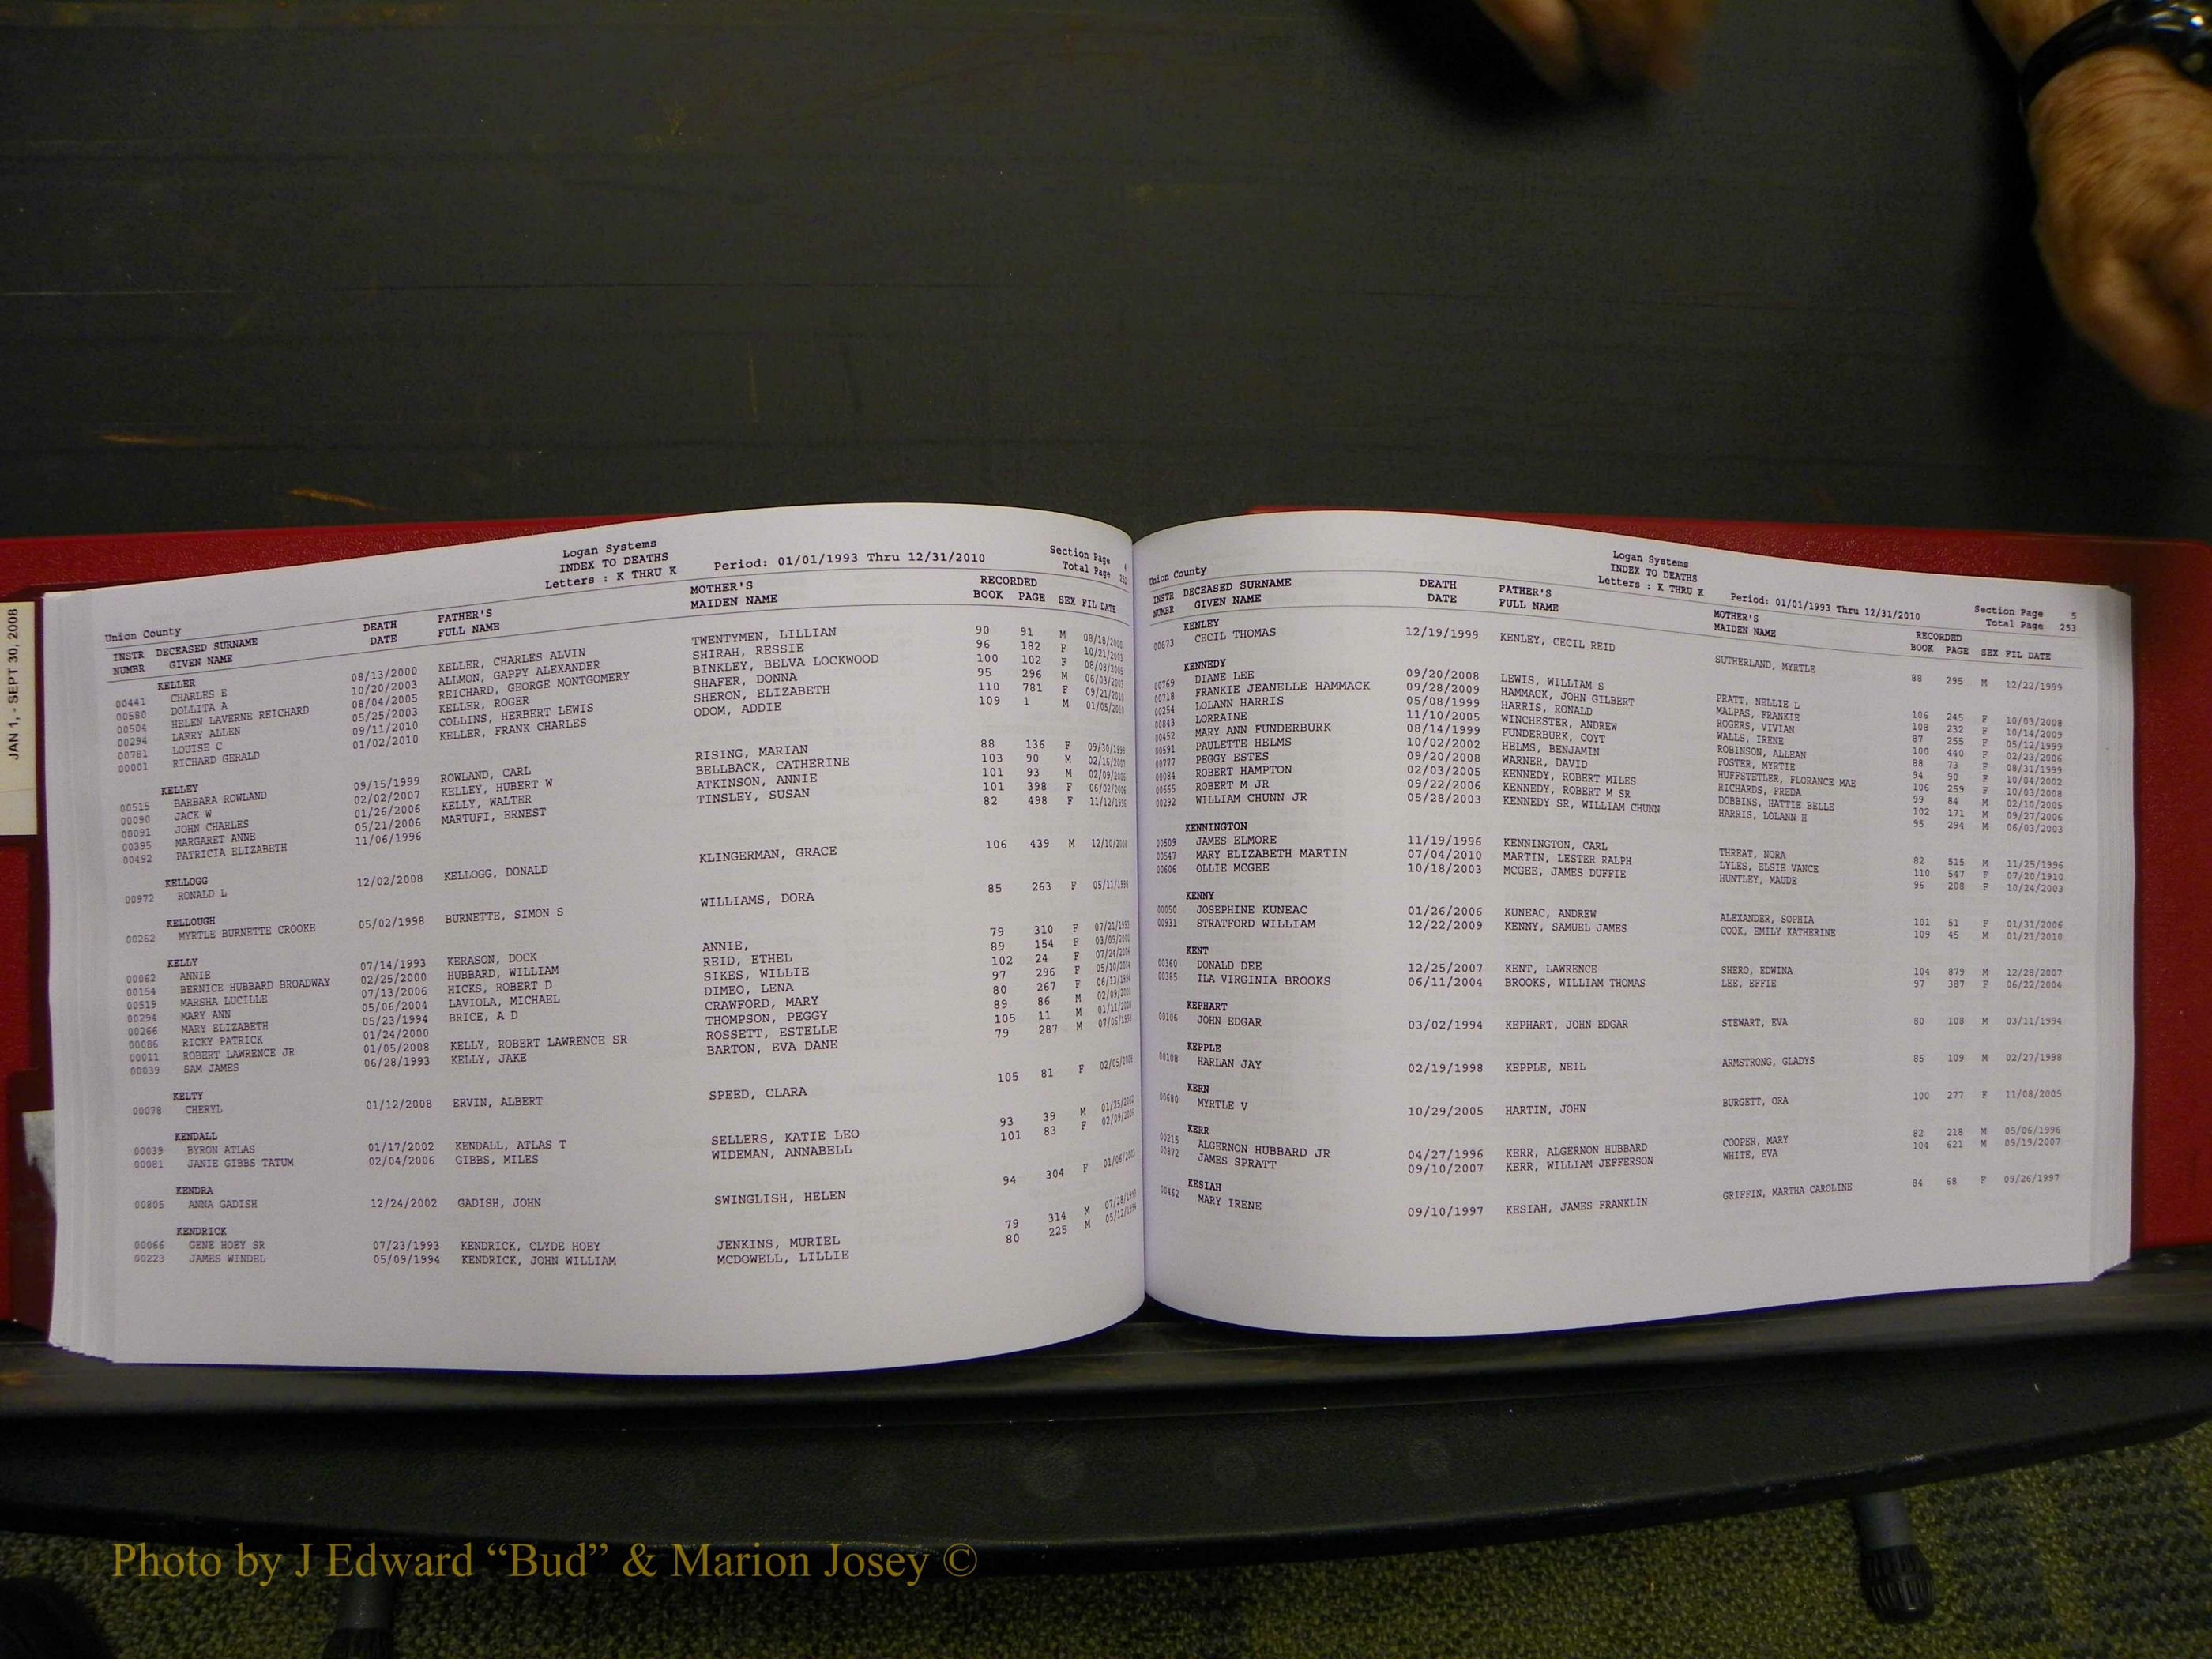 JAN 1, - SEPT 30, 2008
Logan Systems
INDEX TO DEATHS
Letters : K THRU K
Period: 01/01/1993 Thru 12/31/2010
Section Page
Total Page 253
Union County
INSTR DECEASED SURNAME DEATH FATHER'S MOTHER'S RECORDED
NUMBR GIVEN NAME DATE FULL NAME MAIDEN NAME BOOK PAGE SEX FIL DATE
KELLER
00441 CHARLES E 08/13/2000 KELLER, CHARLES ALVIN TWENTYMEN, LILLIAN 90 91 M 08/18/2000
00580 DOLLITA A 10/20/2003 ALLMON, GAPPY ALEXANDER SHIRAH, RESSIE 96 182 F 10/21/2003
00504 HELEN LAVERNE REICHARD 08/04/2005 REICHARD, GEORGE MONTGOMERY BINKLEY, BELVA LOCKWOOD 100 102 F 08/08/2005
00294 LARRY ALLEN 05/25/2003 KELLER, ROGER SHAFER, DONNA 95 296 M 06/03/2003
00781 LOUISE C 09/11/2010 COLLINS, HERBERT LEWIS SHERON, ELIZABETH 110 781 F 09/21/2010
00001 RICHARD GERALD 01/02/2010 KELLER, FRANK CHARLES ODOM, ADDIE 109 1 M 01/05/2010
KELLEY
00515 BARBARA ROWLAND 09/15/1999 ROWLAND, CARL RISING, MARIAN 88 136 F 09/30/1999
00090 JACK W 02/02/2007 KELLEY, HUBERT W BELLBACK, CATHERINE 103 90 M 02/16/2007
00091 JOHN CHARLES 01/26/2006 KELLY, WALTER ATKINSON, ANNIE 101 93 M 02/09/2006
00395 MARGARET ANNE 05/21/2006 MARTUFI, ERNEST TINSLEY, SUSAN 101 398 F 06/02/2006
00492 PATRICIA ELIZABETH 11/06/1996 82 498 F 11/12/1996
KELLOGG
00972 RONALD L 12/02/2008 KELLOGG, DONALD KLINGERMAN, GRACE 106 439 M 12/10/2008
KELLOUGH
00262 MYRTLE BURNETTE CROOKE 05/02/1998 BURNETTE, SIMON S WILLIAMS, DORA 85 263 F 05/11/1998
KELLY
00062 ANNIE 07/14/1993 KERASON, DOCK ANNIE, 79 310 F 07/21/1993
00154 BERNICE HUBBARD BROADWAY 02/25/2000 HUBBARD, WILLIAM REID, ETHEL 89 154 F 03/09/2000
00519 MARSHA LUCILLE 07/13/2006 HICKS, ROBERT D SIKES, WILLIE 102 24 F 07/24/2006
00294 MARY ANN 05/06/2004 LAVIOLA, MICHAEL DIMEO, LENA 97 296 F 05/10/2004
00266 MARY ELIZABETH 05/23/1994 BRICE, A D CRAWFORD, MARY 80 267 F 06/13/1994
00086 RICKY PATRICK 01/24/2000 THOMPSON, PEGGY 89 86 M 02/09/2000
00011 ROBERT LAWRENCE JR 01/05/2008 KELLY, ROBERT LAWRENCE SR ROSSETT, ESTELLE 105 11 M 01/11/2008
00039 SAM JAMES 06/28/1993 KELLY, JAKE BARTON, EVA DANE 79 287 M 07/06/1993
KELTY
00078 CHERYL 01/12/2008 ERVIN, ALBERT SPEED, CLARA 105 81 F 02/05/2008
KENDALL
00039 BYRON ATLAS 01/17/2002 KENDALL, ATLAS T SELLERS, KATIE LEO 93 39 M 01/25/2002
00081 JANIE GIBBS TATUM 02/04/2006 GIBBS, MILES WIDEMAN, ANNABELL 101 83 F 02/09/2006
KENDRA
00805 ANNA GADISH 12/24/2002 GADISH, JOHN SWINGLISH, HELEN 94 304 F 01/06/2003
KENDRICK
00066 GENE HOEY SR 07/23/1993 KENDRICK, CLYDE HOEY JENKINS, MURIEL 79 314 M 07/28/1993
00223 JAMES WINDEL 05/09/1994 KENDRICK, JOHN WILLIAM MCDOWELL, LILLIE 80 225 M 05/12/1994
Logan Systems
INDEX TO DEATHS
Letters : K THRU K
Period: 01/01/1993 Thru 12/31/2010
Section Page 5
Total Page 253
Union County
INSTR DECEASED SURNAME DEATH FATHER'S MOTHER'S RECORDED
NUMBR GIVEN NAME DATE FULL NAME MAIDEN NAME BOOK PAGE SEX FIL DATE
KENLEY
00673 CECIL THOMAS 12/19/1999 KENLEY, CECIL REID SUTHERLAND, MYRTLE 88 295 M 12/22/1999
KENNEDY
00769 DIANE LEE 09/20/2008 LEWIS, WILLIAM S PRATT, NELLIE L 106 245 F 10/03/2008
00718 FRANKIE JEANELLE HAMMACK 09/28/2009 HAMMACK, JOHN GILBERT MALPAS, FRANKIE 108 232 F 10/14/2009
00254 LOLANN HARRIS 05/08/1999 HARRIS, RONALD ROGERS, VIVIAN 87 255 F 05/12/1999
00843 LORRAINE 11/10/2005 WINCHESTER, ANDREW WALLS, IRENE 100 440 F 02/23/2006
00452 MARY ANN FUNDERBURK 08/14/1999 FUNDERBURK, COYT ROBINSON, ALLEAN 88 73 F 08/31/1999
00591 PAULETTE HELMS 10/02/2002 HELMS, BENJAMIN FOSTER, MYRTIE 94 90 F 10/04/2002
00777 PEGGY ESTES 09/20/2008 WARNER, DAVID HUFFSTETLER, FLORANCE MAE 106 259 F 10/03/2008
00084 ROBERT HAMPTON 02/03/2005 KENNEDY, ROBERT MILES RICHARDS, FREDA 99 84 M 02/10/2005
00665 ROBERT M JR 09/22/2006 KENNEDY, ROBERT M SR DOBBINS, HATTIE BELLE 102 171 M 09/27/2006
00292 WILLIAM CHUNN JR 05/28/2003 KENNEDY SR, WILLIAM CHUNN HARRIS, LOLANN H 95 294 M 06/03/2003
KENNINGTON
00509 JAMES ELMORE 11/19/1996 KENNINGTON, CARL THREAT, NORA 82 515 M 11/25/1996
00547 MARY ELIZABETH MARTIN 07/04/2010 MARTIN, LESTER RALPH LYLES, ELSIE VANCE 110 547 F 07/20/1910
00606 OLLIE MCGEE 10/18/2003 MCGEE, JAMES DUFFIE HUNTLEY, MAUDE 96 208 F 10/24/2003
KENNY
00050 JOSEPHINE KUNEAC 01/26/2006 KUNEAC, ANDREW ALEXANDER, SOPHIA 101 51 F 01/31/2006
00931 STRATFORD WILLIAM 12/22/2009 KENNY, SAMUEL JAMES COOK, EMILY KATHERINE 109 45 M 01/21/2010
KENT
00360 DONALD DEE 12/25/2007 KENT, LAWRENCE SHERO, EDWINA 104 879 M 12/28/2007
00385 ILA VIRGINIA BROOKS 06/11/2004 BROOKS, WILLIAM THOMAS LEE, EFFIE 97 387 F 06/22/2004
KEPHART
00106 JOHN EDGAR 03/02/1994 KEPHART, JOHN EDGAR STEWART, EVA 80 108 M 03/11/1994
KEPPLE
00108 HARLAN JAY 02/19/1998 KEPPLE, NEIL ARMSTRONG, GLADYS 85 109 M 02/27/1998
KERN
00680 MYRTLE V 10/29/2005 HARTIN, JOHN BURGETT, ORA 100 277 F 11/08/2005
KERR
00215 ALGERNON HUBBARD JR 04/27/1996 KERR, ALGERNON HUBBARD COOPER, MARY 82 218 M 05/06/1996
00872 JAMES SPRATT 09/10/2007 KERR, WILLIAM JEFFERSON WHITE, EVA 104 621 M 09/19/2007
KESIAH
00462 MARY IRENE 09/10/1997 KESIAH, JAMES FRANKLIN GRIFFIN, MARTHA CAROLINE 84 68 F 09/26/1997
Photo by J Edward “Bud” & Marion Josey ©